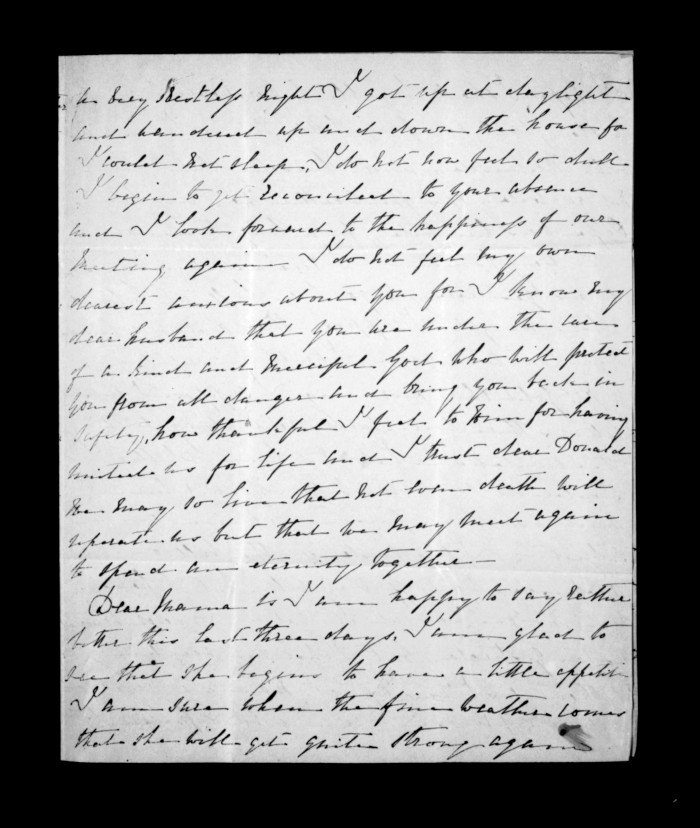 a very restless night I got up at daylight
and wandered up and down the house for
I could not sleep, I do not now feel so dull
I begin to get reconciled to your absence
and I look forward to the happiness of our
meeting again I do not feel my own
dearest anxious about you for I know my
dear husband that you are under the care
of a kind and Merciful God who will protect
you from all danger and bring you back in
safety, how thankful I feel to Him for having
united us for life and I trust dear Donald
we may so live that not even death will
seperate us but that we may meet again
to spend an eternity together —
Dear Mama is I am happy to say rather
better this last three days, I am glad to
see that she begins to have a little appetite
I am sure when the fine weather comes
that she will get quite strong again